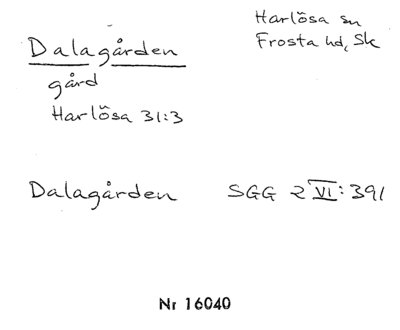 Harlösa sn
Frosta hd, Sk
Dalagården
gård
Harlösa 31:3
Dalagården SGG 2 VI: 391
Nr 16040